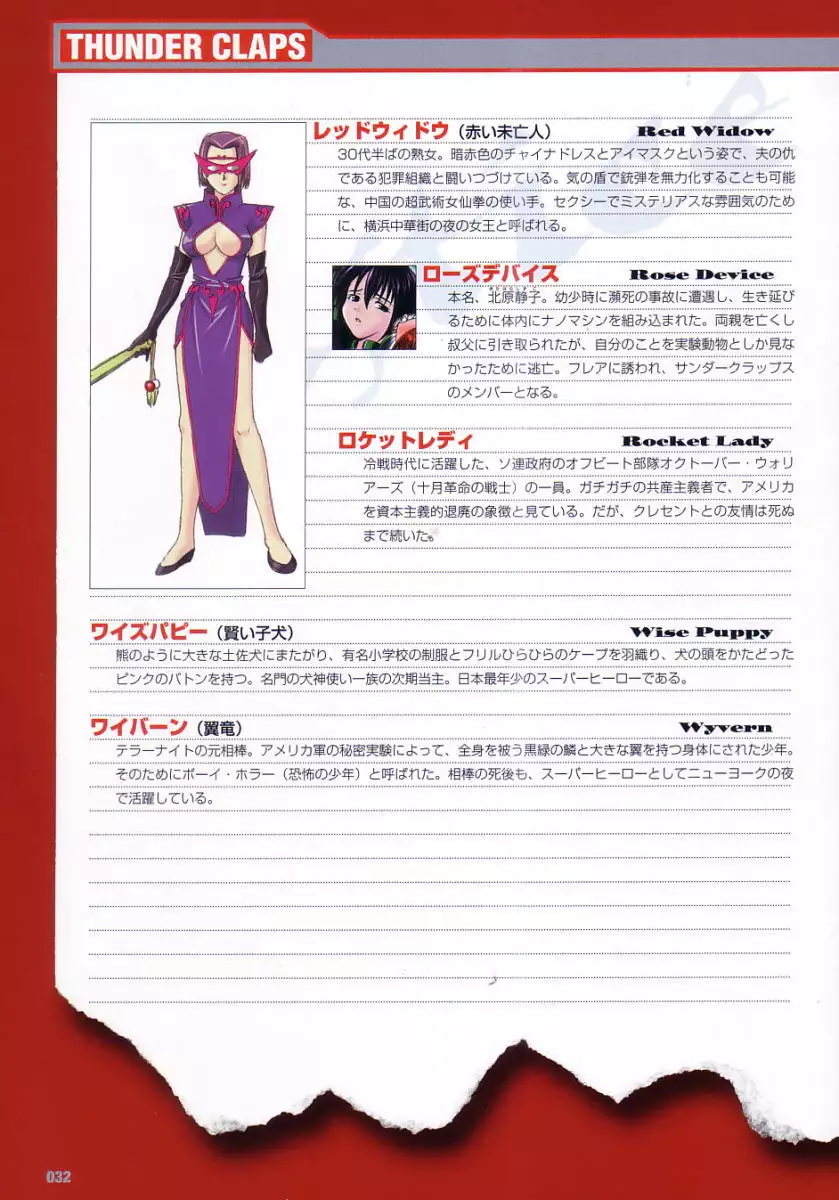 THUNDER CLAPS
レッドウィドウ（赤い未亡人） Red Widow
30代半ばの熟女。暗赤色のチャイナドレスとアイマスクという姿で、夫の仇
である犯罪組織と闘いつづけている。気の盾で銃弾を無力化することも可能
な、中国の超武術女仙拳の使い手。セクシーでミステリアスな雰囲気のため
に、横浜中華街の夜の女王と呼ばれる。
ローズデバイス Rose Device
本名、北原静子。幼少時に瀕死の事故に遭遇し、生き延び
るために体内にナノマシンを組み込まれた。両親を亡くし
叔父に引き取られたが、自分のことを実験動物としか見な
かったために逃亡。フレアに誘われ、サンダークラップス
のメンバーとなる。
ロケットレディ Rocket Lady
冷戦時代に活躍した、ソ連政府のオフビート部隊オクトーバー・ウォリ
アーズ（十月革命の戦士）の一員。ガチガチの共産主義者で、アメリカ
を資本主義的退廃の象徴と見ている。だが、クレセントとの友情は死ぬ
まで続いた。
ワイズパピー（賢い子犬） Wise Puppy
熊のように大きな土佐犬にまたがり、有名小学校の制服とフリルひらひらのケープを羽織り、犬の頭をかたどった
ピンクのバトンを持つ。名門の犬神使い一族の次期当主。日本最年少のスーパーヒーローである。
ワイバーン（翼竜） Wyvern
テラーナイトの元相棒。アメリカ軍の秘密実験によって、全身を被う黒緑の鱗と大きな翼を持つ身体にされた少年。
そのためにボーイ・ホラー（恐怖の少年）と呼ばれた。相棒の死後も、スーパーヒーローとしてニューヨークの夜
で活躍している。
032